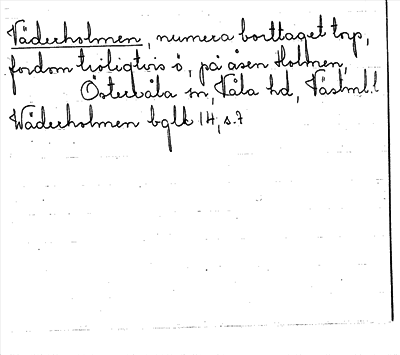 Väderholmen, numera borttaget torp,
fordom troligtvis ö, på åsen Holmen,
Östervåla sn, Våla hd, Västml.l
Wäderholmen bglk 14, s.7